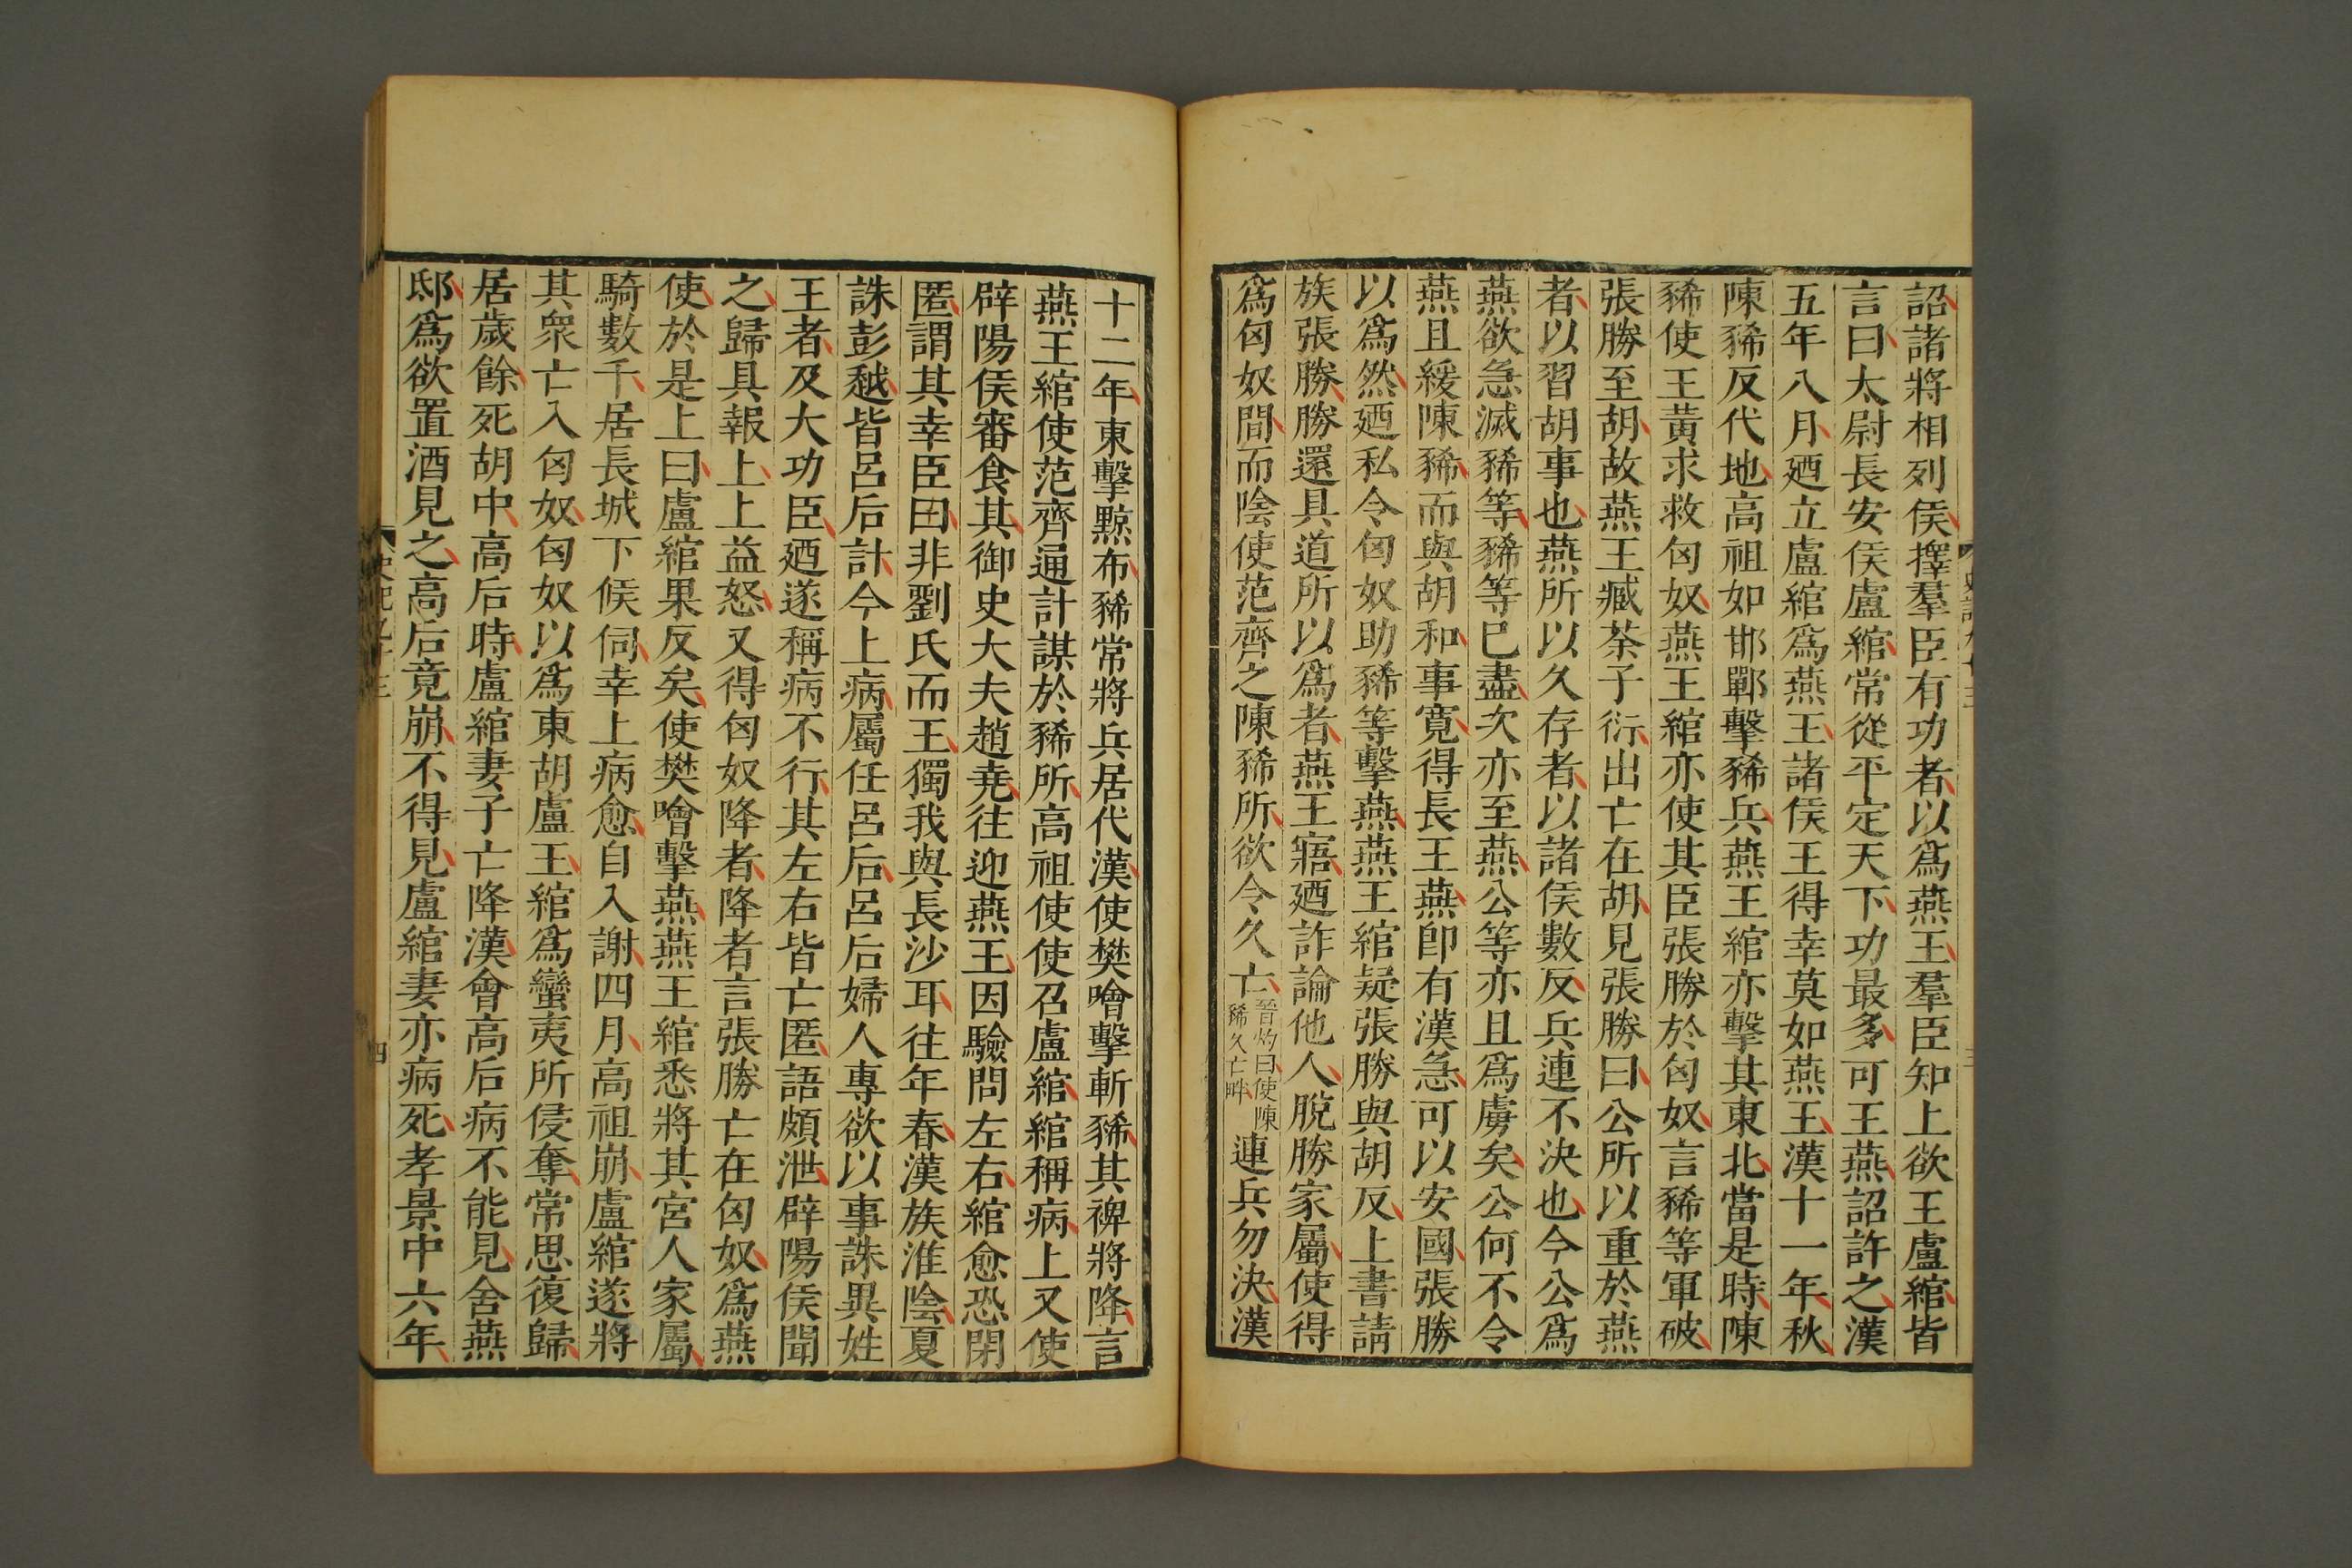 詔諸將相列侯擇羣臣有功者以爲燕王羣臣知上欲王盧綰皆
言曰太尉長安侯盧綰常從平定天下功最多可王燕詔許之漢
五年八月廼立盧綰爲燕王諸侯王得幸莫如燕王漢十一年秋
陳豨反代地高祖如邯鄲擊豨兵燕王綰亦擊其東北當是時陳
豨使王黃求救匈奴燕王綰亦使其臣張勝於匈奴言豨等軍破
張勝至胡故燕王臧荼子衍出亡在胡見張勝曰公所以重於燕
者以習胡事也燕所以久存者以諸侯數反兵連不決也今公爲
燕欲急滅豨等豨等已盡次亦至燕公等亦且爲虜矣公何不令
燕且緩陳豨而與胡和事寬得長王燕卽有漢急可以安國張勝
以爲然廼私令匈奴助豨等擊燕燕王綰疑張勝與胡反上書請
族張勝勝還具道所以爲者燕王寤廼詐論他人脫勝家屬使得
爲匈奴間而陰使范齊之陳豨所欲令久亡晉灼曰使陳豨久亡畔連兵勿決漢
十二年東擊黥布豨常將兵居代漢使樊噲擊斬豨其裨將降言
燕王綰使范齊通計謀於豨所高祖使使召盧綰綰稱病上又使
辟陽侯審食其御史大夫趙堯往迎燕王因驗問左右綰愈恐閉
匿謂其幸臣曰非劉氏而王獨我與長沙耳往年春漢族淮陰夏
誅彭越皆呂后計今上病屬任呂后呂后婦人專欲以事誅異姓
王者及大功臣廼遂稱病不行其左右皆亡匿語頗泄辟陽侯聞
之歸具報上上益怒又得匈奴降者降者言張勝亡在匈奴爲燕
使於是上曰盧綰果反矣使樊噲擊燕燕王綰悉將其宮人家屬
騎數千居長城下候伺幸上病愈自入謝四月高祖崩盧綰遂將
其衆亡入匈奴匈奴以爲東胡盧王綰爲蠻夷所侵奪常思復歸
居歲餘死胡中高后時盧綰妻子亡降漢會高后病不能見舍燕
邸爲欲置酒見之高后竟崩不得見盧綰妻亦病死孝景中六年